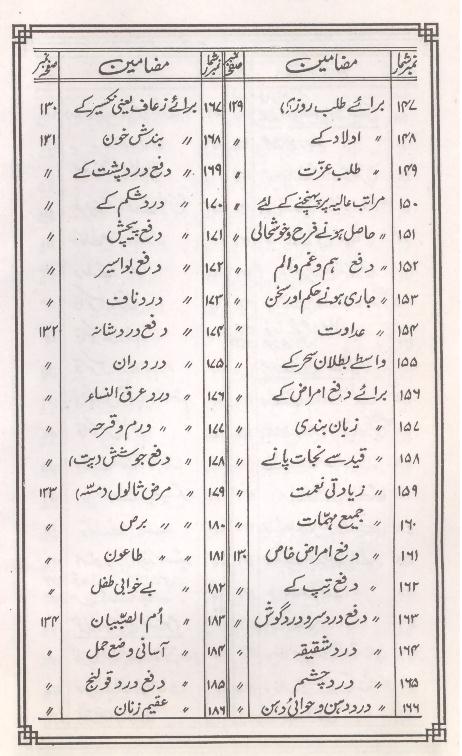 نمبر شمار مضامین نمبر صفحہ نمبر شمار مضامین صفحہ نمبر
۱۴۷ برائے طلب روزی ۱۲۹ ۱۶۷ برائے زعاف یعنی نکسیر کے ۱۳۰
۱۴۸ ״ اولاد کے ״ ۱۶۸ ״ بندش خون ۱۳۱
۱۴۹ ״ طلب عزّت ״ ۱۶۹ ״ دفع درد پشت کے ״
۱۵۰ مراتب عالیہ پر پہنچنے کے لئے ״ ۱۷۰ ״ درد شکم کے ״
۱۵۱ ״ حاصل ہونے فرح و خوشحالی ״ ۱۷۱ ״ دفع پیچش ״
۱۵۲ ״ دفع ہم و غم و الم ״ ۱۷۲ ״ دفع بواسیر ״
۱۵۳ ״ جاری ہونے حکم اور سخن ״ ۱۷۳ ״ درد ناف ״
۱۵۴ ״ عداوت ״ ۱۷۴ ״ دفع درد شانہ ۱۳۲
۱۵۵ واسطے بطلان سحر کے ״ ۱۷۵ ״ درد ران ״
۱۵۶ برائے دفع امراض کے ״ ۱۷۶ ״ درد عرق النساء ״
۱۵۷ ״ زبان بندی ״ ۱۷۷ ״ ״ ورم و قرحہ ״
۱۵۸ ״ قید سے نجات پانے ״ ۱۷۸ ״ دفع جوشش (پت) ״
۱۵۹ ״ زیادتی نعمت ״ ۱۷۹ ״ مرض ثالول (مسّہ) ۱۳۳
۱۶۰ ״ جمیع مہمّات ״ ۱۸۰ ״ ״ برص ״
۱۶۱ ״ دفع امراض خاص ۱۳۰ ۱۸۱ ״ ״ طاعون ״
۱۶۲ ״ دفع تپ کے ״ ۱۸۲ ״ بے خوابی طفل ״
۱۶۳ ״ دفع درد سر و درد گوش ״ ۱۸۳ ״ اُم الصّبیان ۱۳۴
۱۶۴ ״ درد شقیقہ ״ ۱۸۴ ״ آسانی وضع حمل ״
۱۶۵ ״ درد چشم ״ ۱۸۵ ״ دفع درد قولنج ״
۱۶۶ ״ درد دہن و خوابیٔ دہن ״ ۱۸۶ ״ عقیم زنان ״